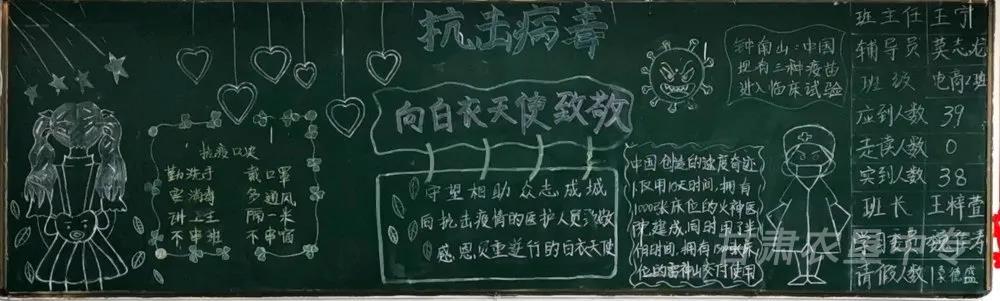 抗击病毒
向白衣天使致敬
抗疫口决
勤洗手 戴口罩
室消毒 多通风
讲卫生 隔一米
不串班 不串宿
守望相助众志成城
向抗击疫情的医护人员致敬
感恩负重逆行的白衣天使
钟南山:中国
现有三种疫苗
进入临床试验
中国创造的速度奇迹
仅用10天时间,拥有
1000张床位的火神医
院建成同时用了半
月时间,拥有1500张床
位的雷神山交付使用
班主任 王宁
辅导员 莫志龙
班级 电商2班
应到人数 39
走读人数 0
实到人数 38
班长 王梓萱
请假人数 1 德盛